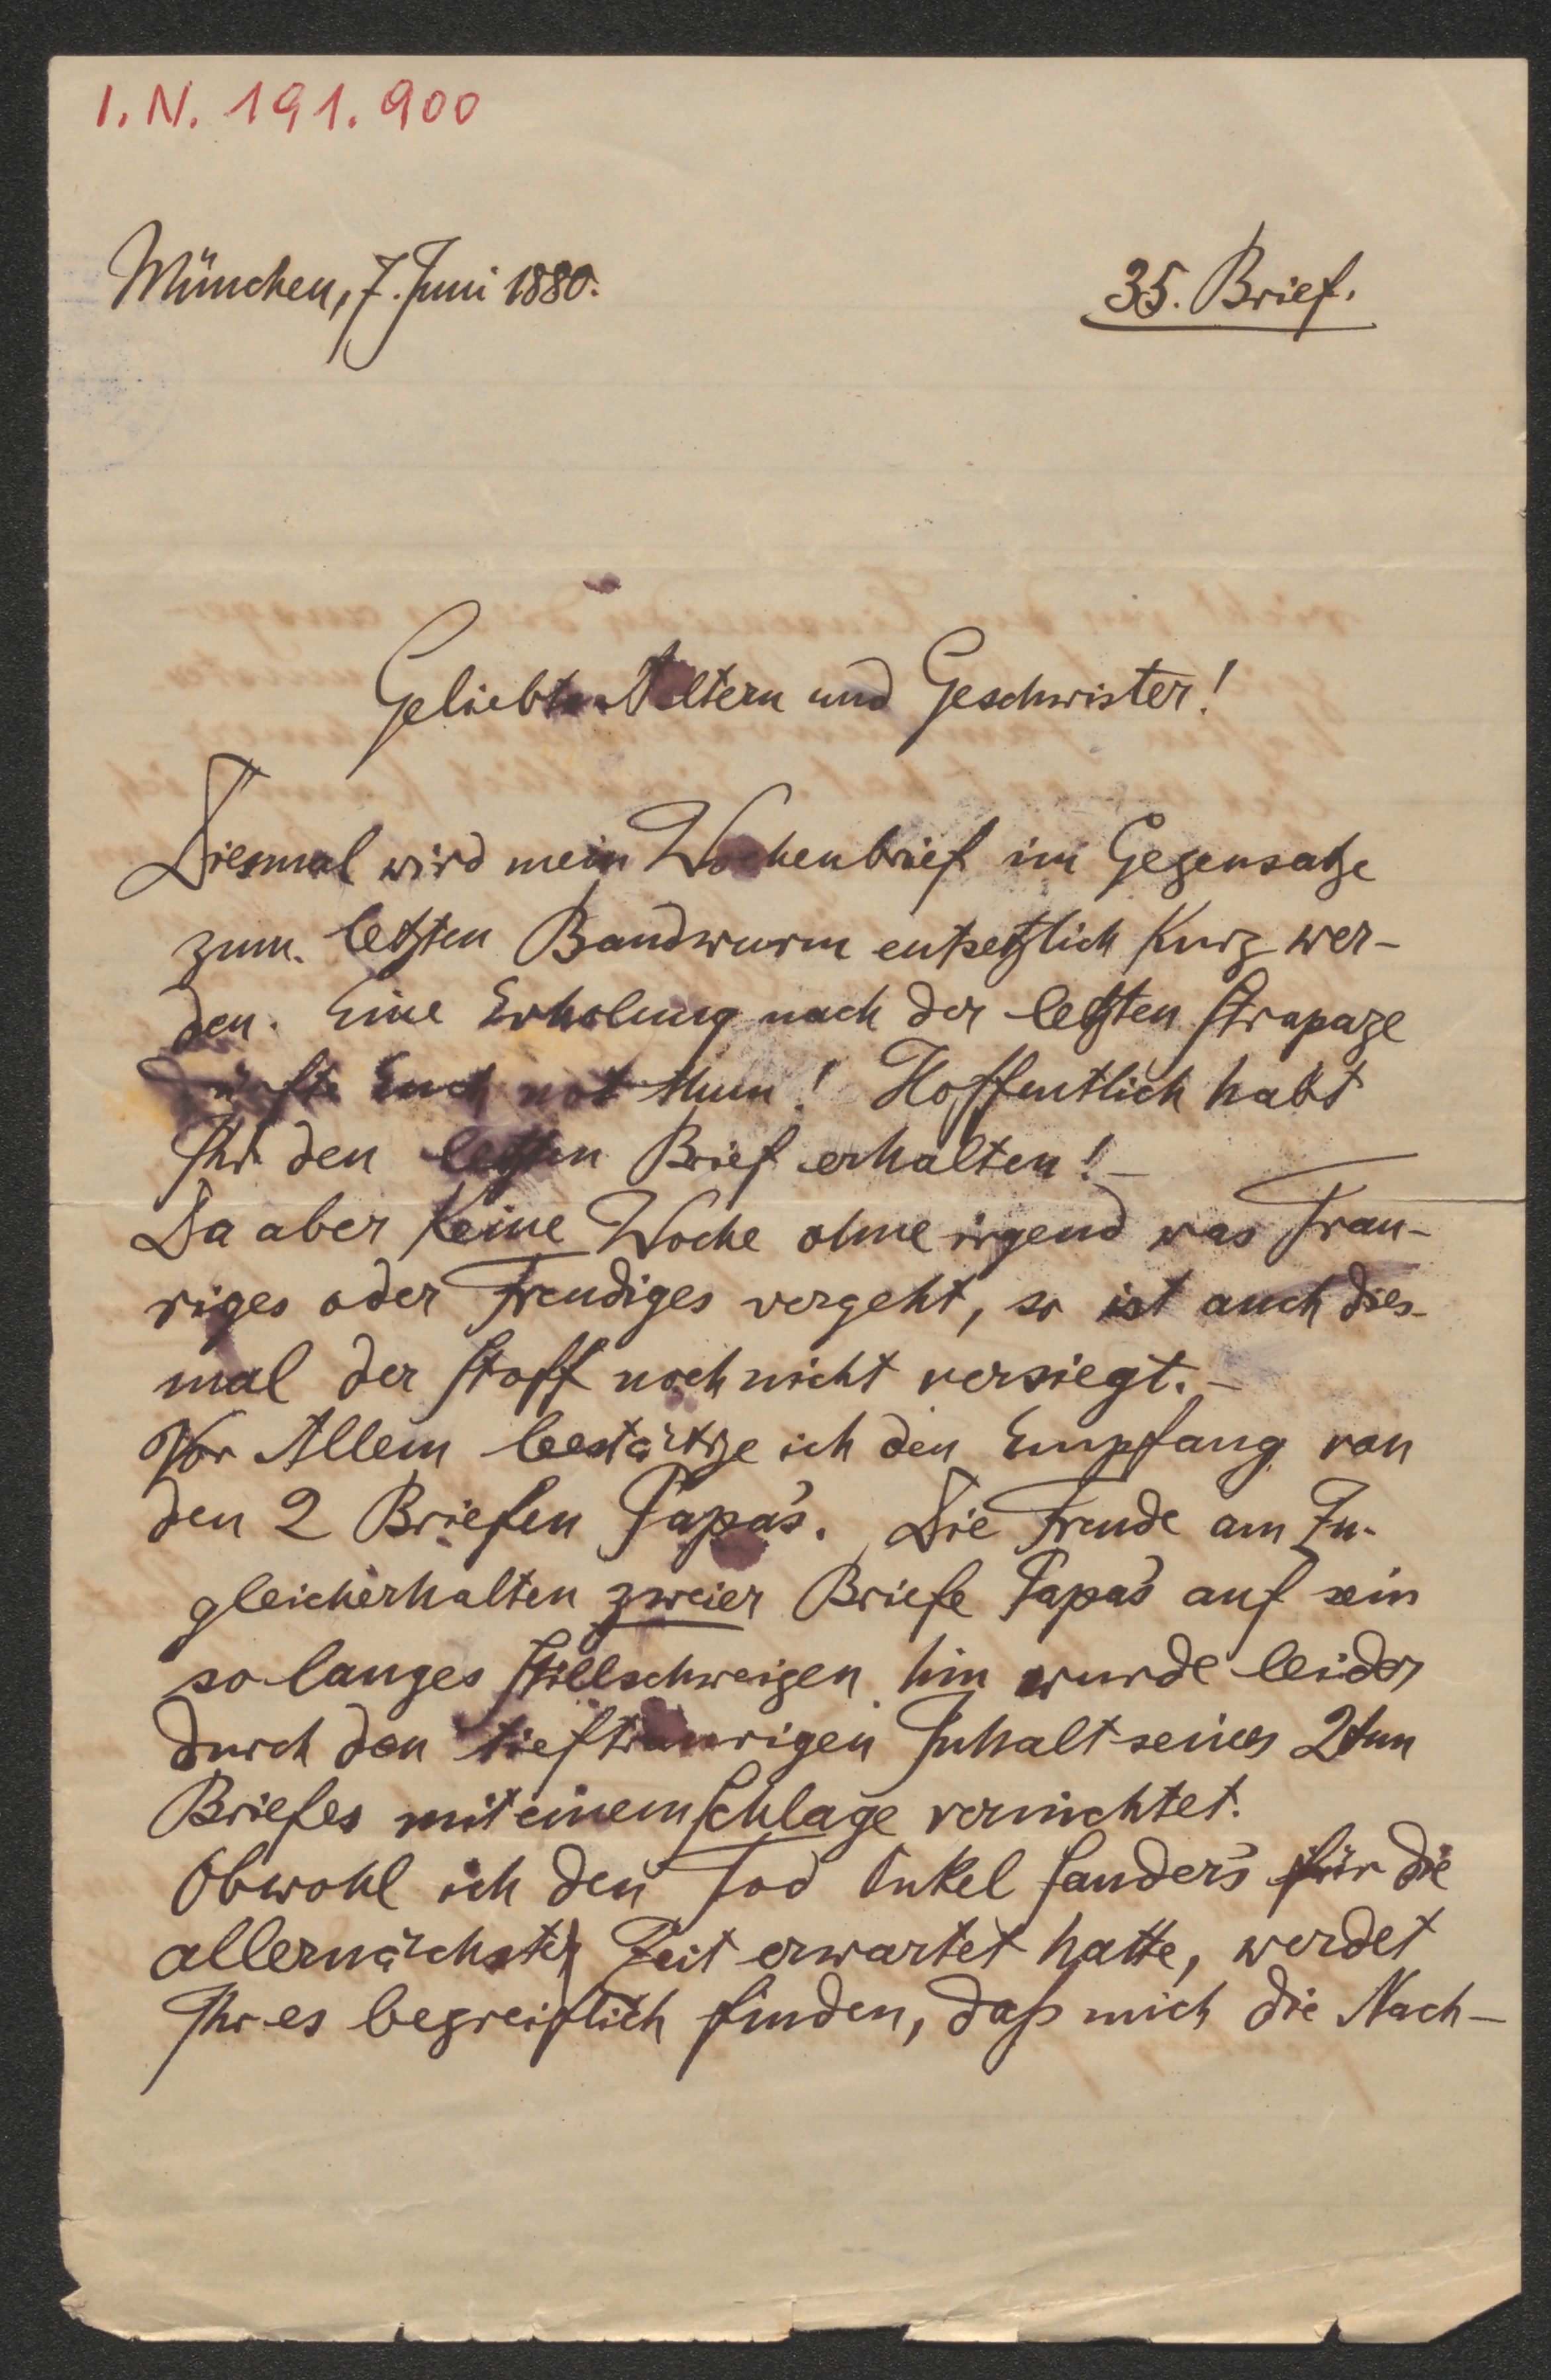 I.N. 191.900
München, 7. Juni 1880.
35. Brief.
Geliebte Ältern und Geschwister!
Diesmal wird mein Wochenbrief im Gegensatze
zum letzten Bandwurm entsetzlich kurz wer-
den. Eine Erholung nach der letzten Strapaze
dürfte Euch not thun! Hoffentlich habt
Ihr den letzten Brief erhalten! –
Da aber keine Woche ohne irgend was Trau-
riges oder Freudiges vergeht, so ist auch dies-
mal der Stoff noch nicht versiegt. –
Vor Allem bestätige ich den Empfang von
den 2 Briefen Papa's. Die Freude am Zu-
gleicherhalten zweier Briefe Papa's auf sein
so langes Stillschweigen hin wurde leider
durch den tieftraurigen Inhalt seines 2ten
Briefes mit einem Schlage vernichtet.
Obwohl ich den Tod Onkel Sander's für die
allernächste Zeit erwartet hatte, werdet
Ihr es begreiflich finden, daß mich die Nach-